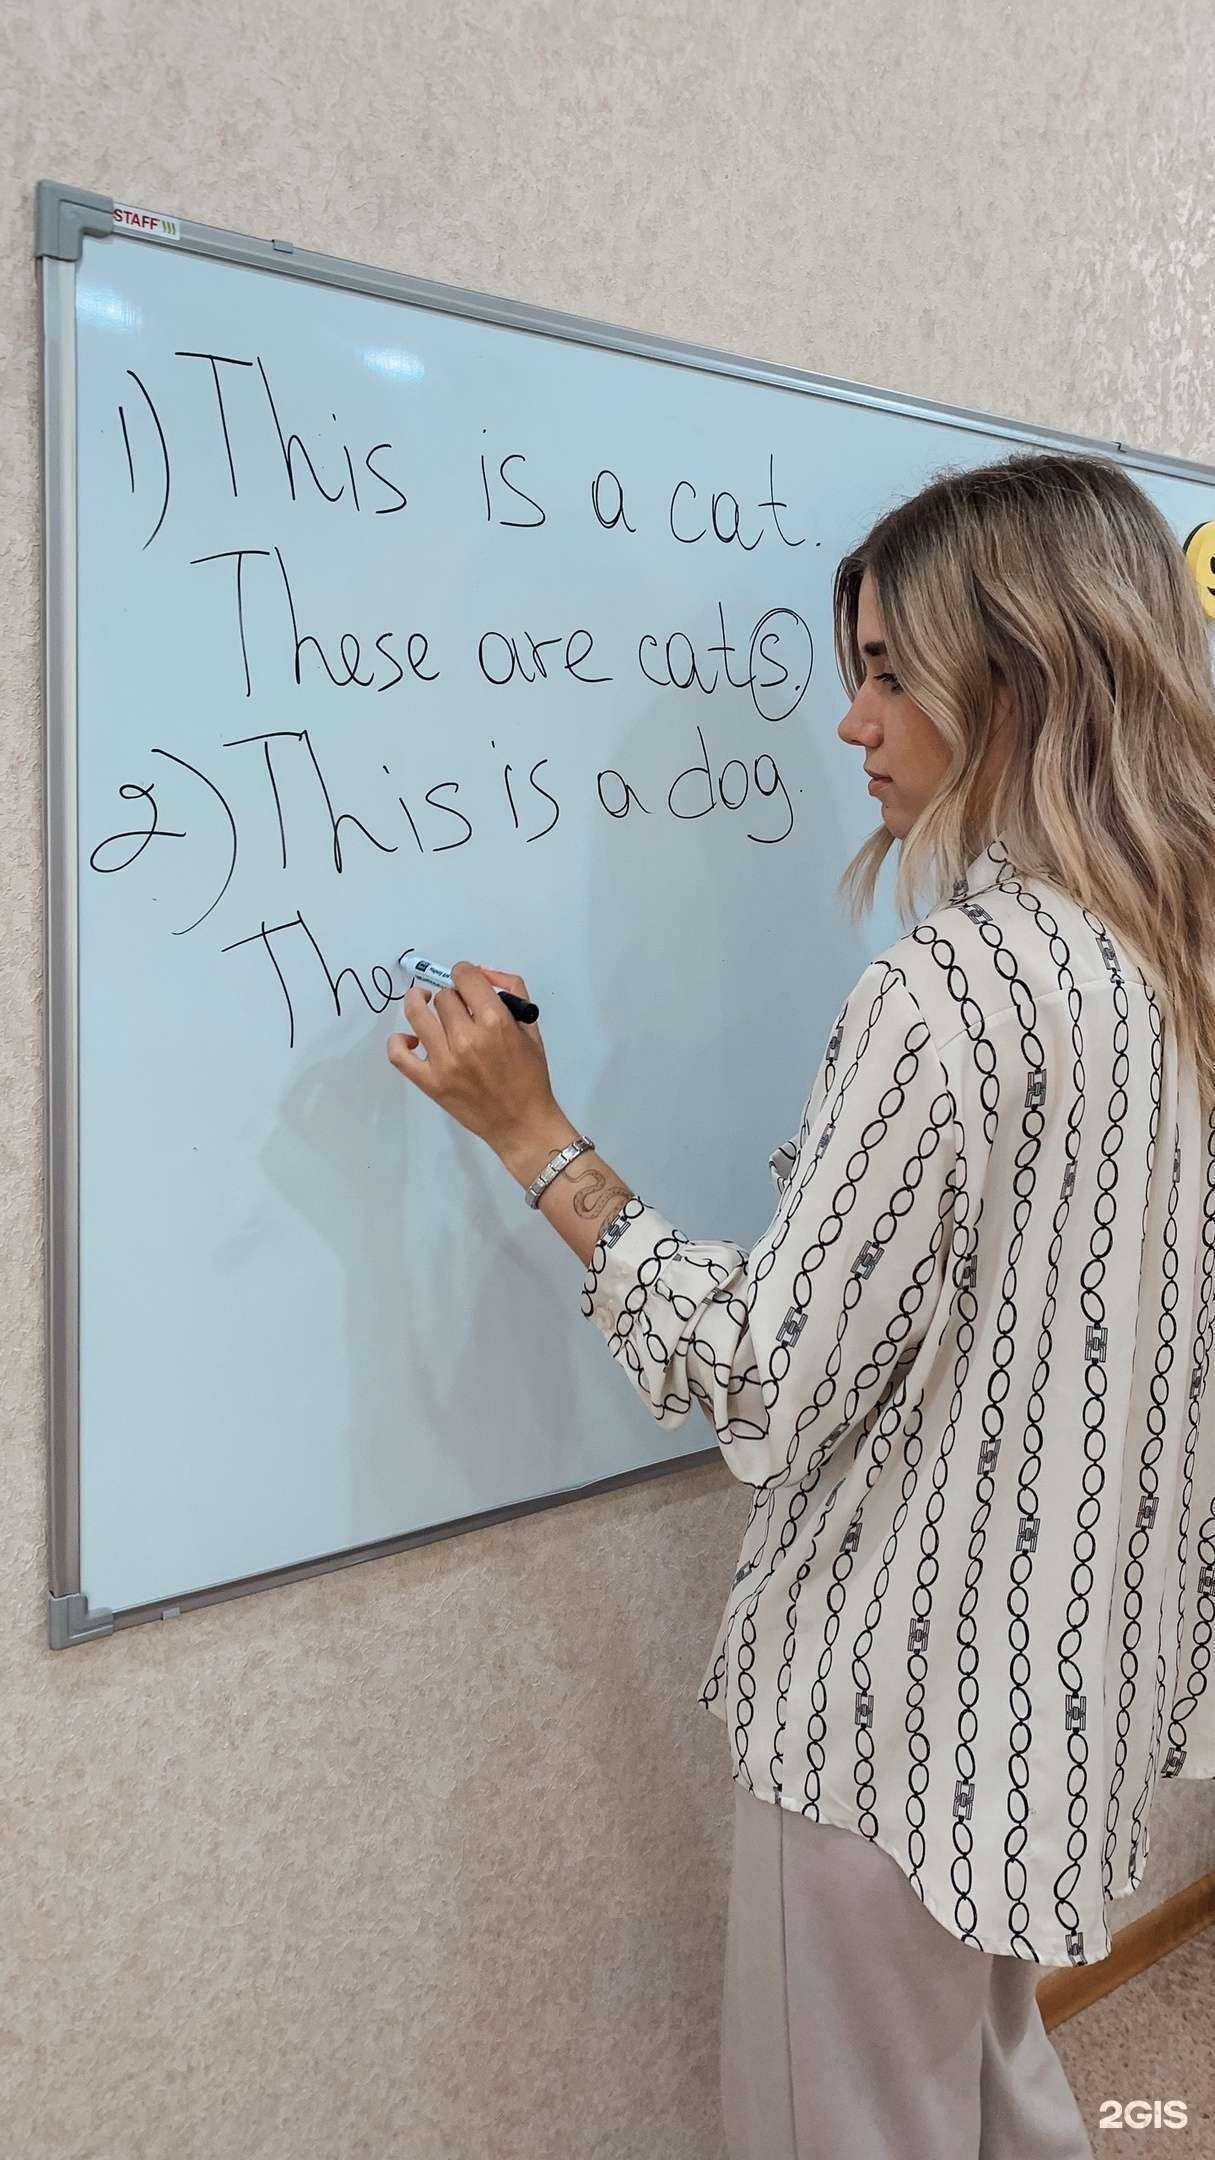 STAFF
1) This is a cat.
These are cats.
2) This is a dog.
The
2GIS